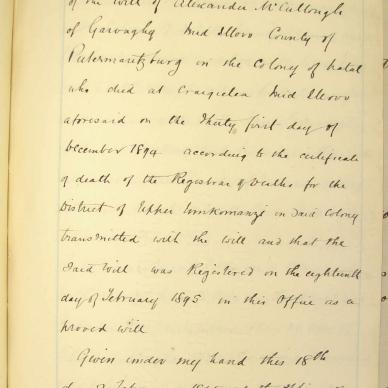 of the will of Alexander McCullough
of Garvaghy Mid Illovo County of
Pietermaritzburg in the Colony of Natal
who died at Craigielea Mid Illovo
aforesaid on the Thirty first day of
December 1894 according to the certificate
of death of the Registrar of Deaths for the
District of Upper Umkomanzi in said Colony
transmitted with the will and that the
said will was Registered on the eighteenth
day of February 1895 in this Office as a
proved will
Given under my hand this 18th